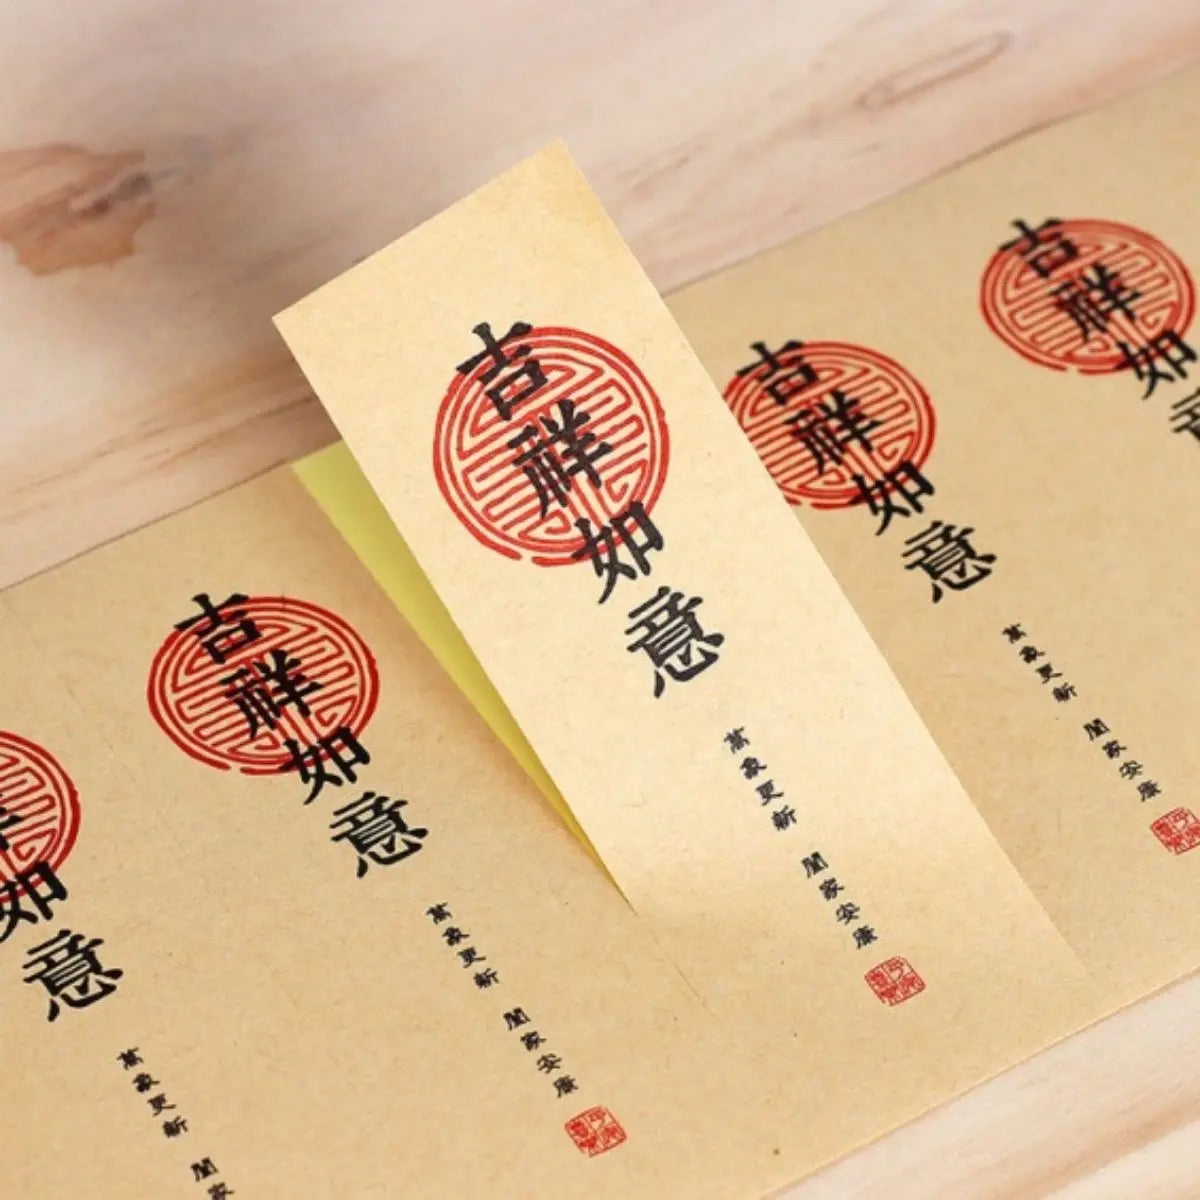 祥如意
萬象更新 闔家
吉祥如意
萬象更新 闔家安康
吉祥如意
萬象更新 闔家安康
吉祥如意
萬象更新 闔家安康
吉祥如